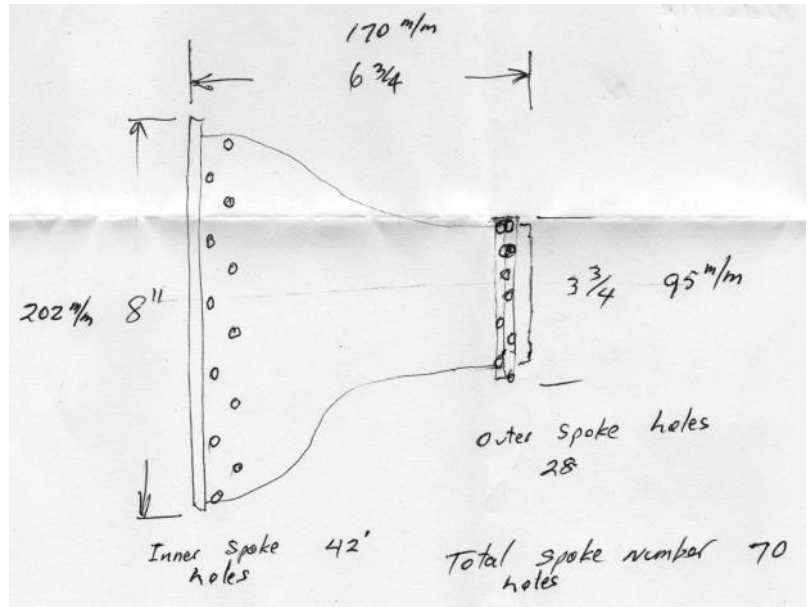 170 m/m
6 3/4
202 m/m 8"
3 3/4 95 m/m
Outer spoke holes
28
Inner spoke 42'
holes
Total spoke number 70
holes